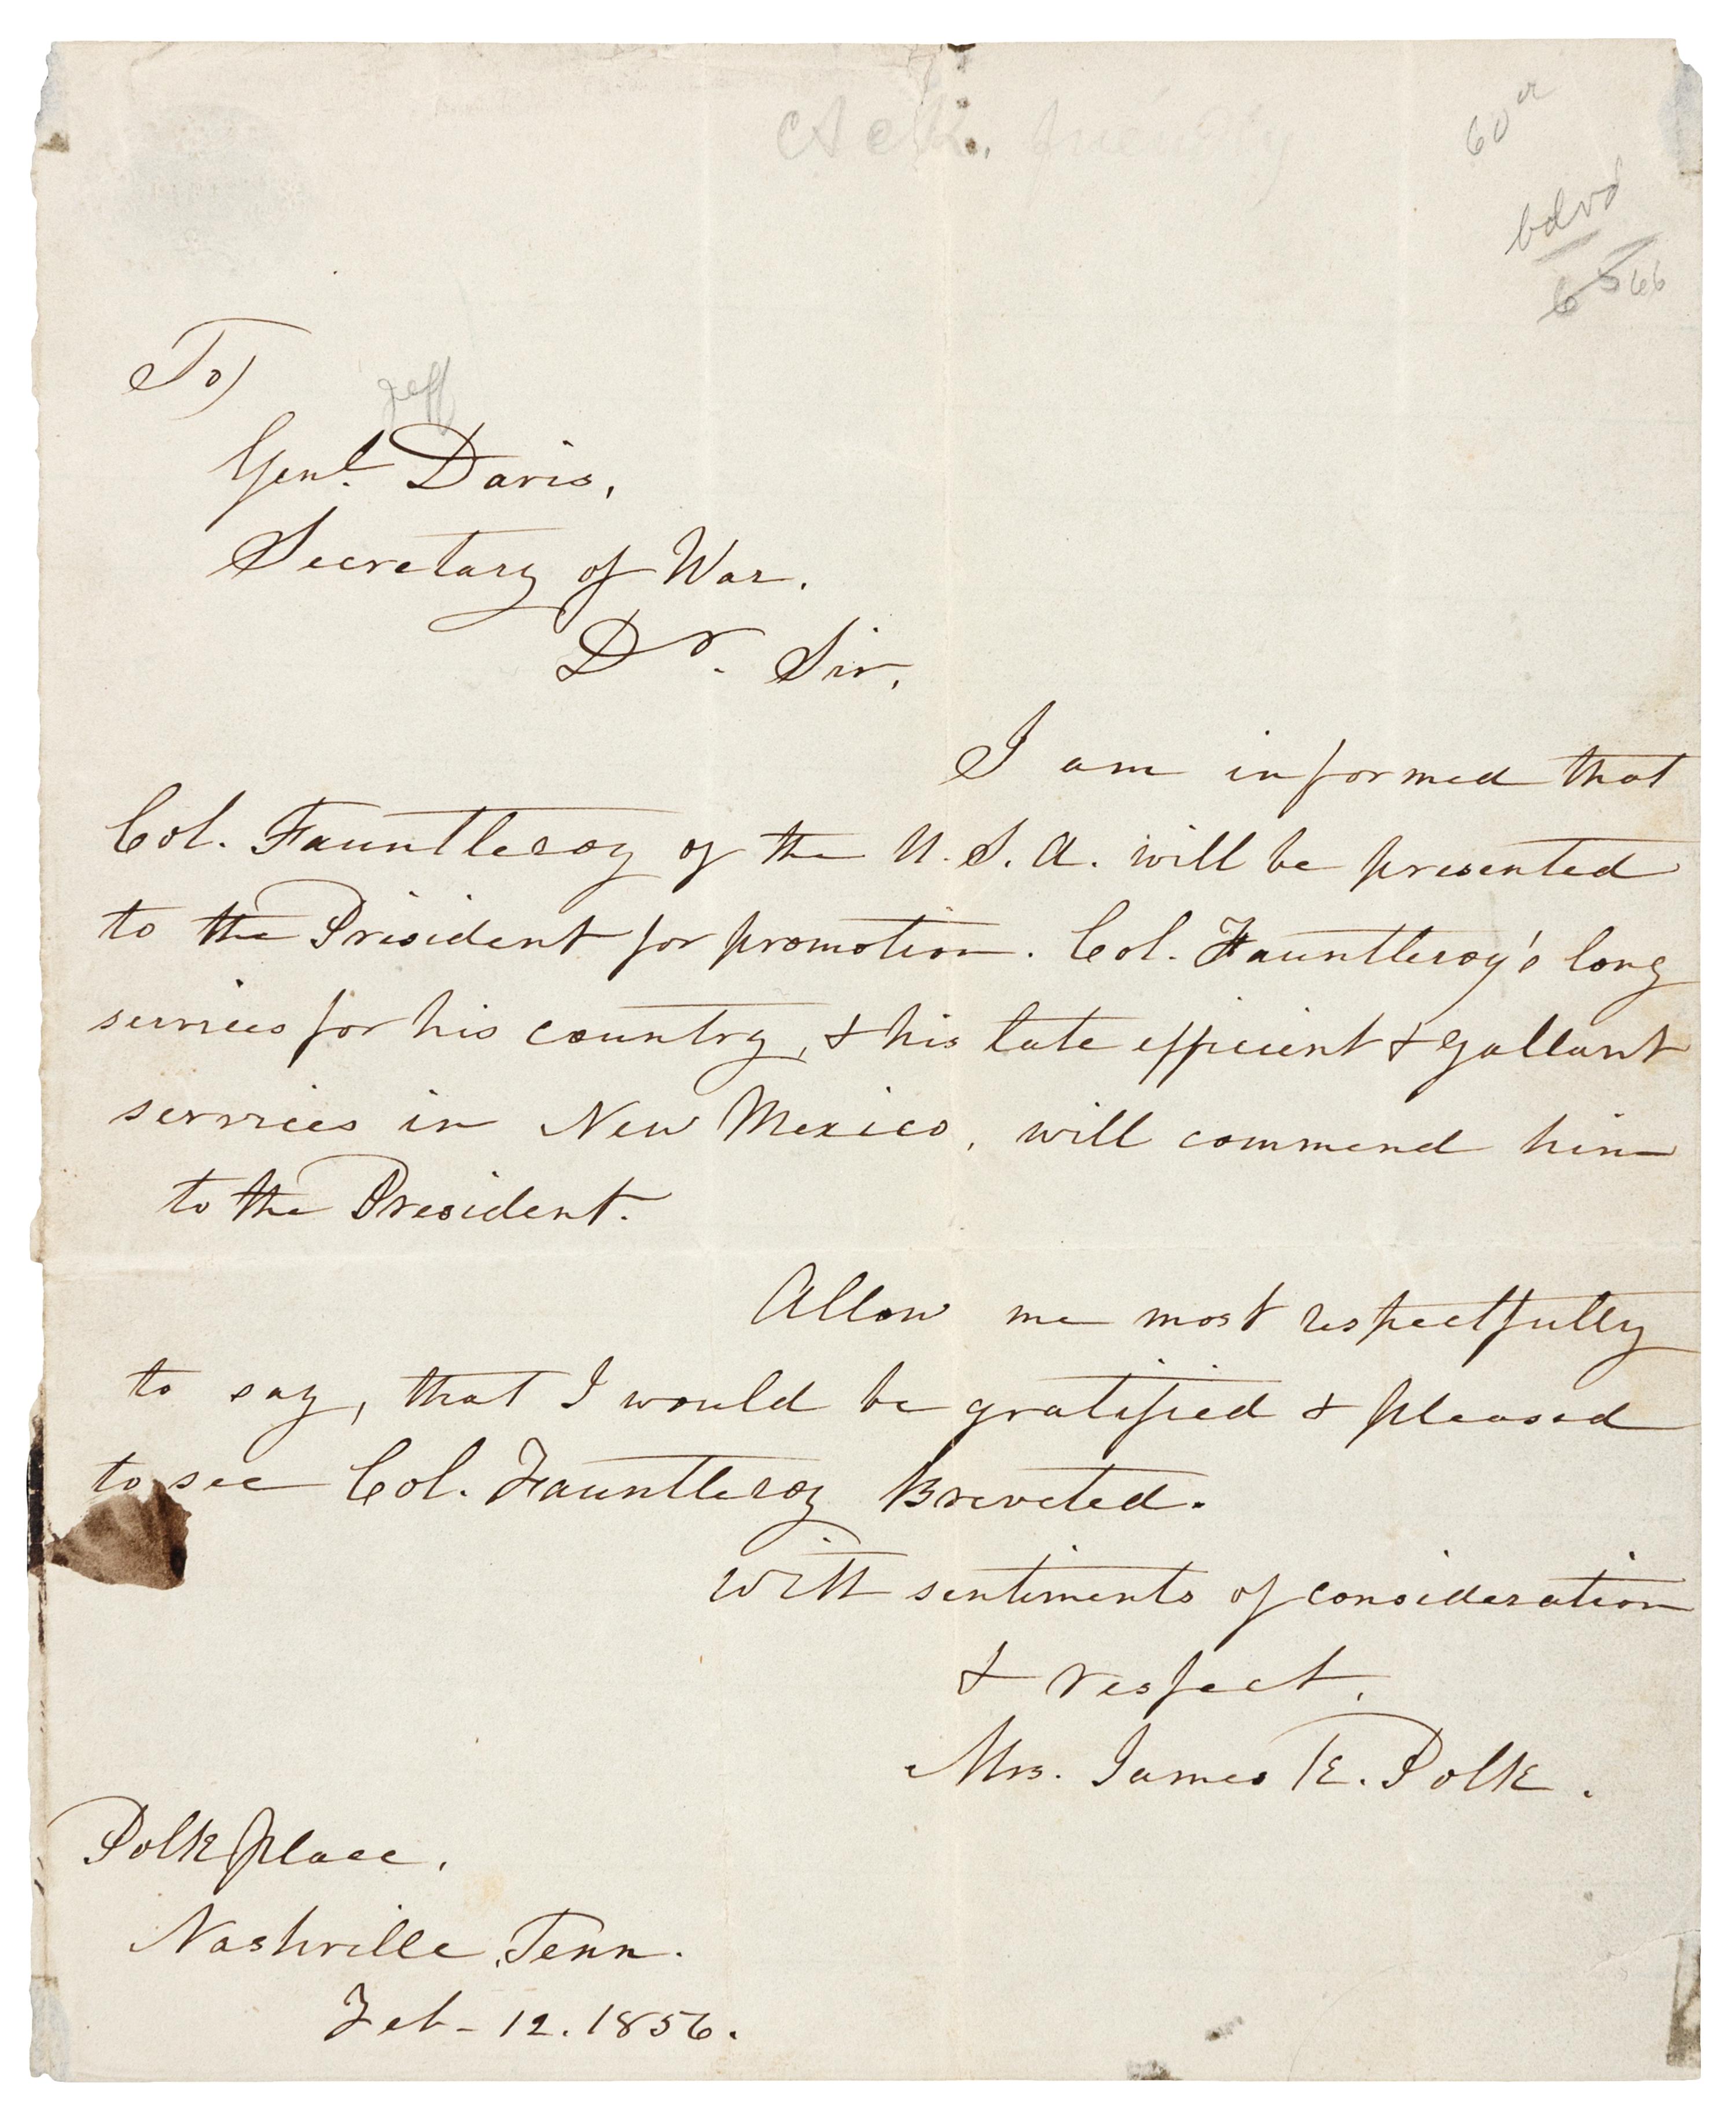 60
bdvd
To)
Jeff
Genl. Davis,
Secretary of War.
Dr. Sir,
I am informed that
Col. Fauntleroy of the U.S.A. will be presented
to the President for promotion. Col. Fauntleroy's long
services for his country, & his late efficient & gallant
services in New Mexico, will commend him
to the President.
Allow me most respectfully
to say, that I would be gratified & pleased
to see Col. Fauntleroy Breveted.
With sentiments of consideration
& respect,
Mrs. James K. Polk.
Polk place,
Nashville, Tenn.
Feb - 12. 1856.